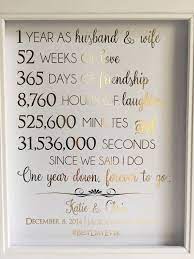 1 YEAR AS husband & wife
52 WEEKS OF love
365 DAYS OF friendship
8,760 HOURS OF laughter
525,600 MINUTES
31,536,000 SECONDS
SINCE WE SAID I DO
One year down, forever to go.
Katie & Chris
DECEMBER 6, 2014
#BESTDAYEVER